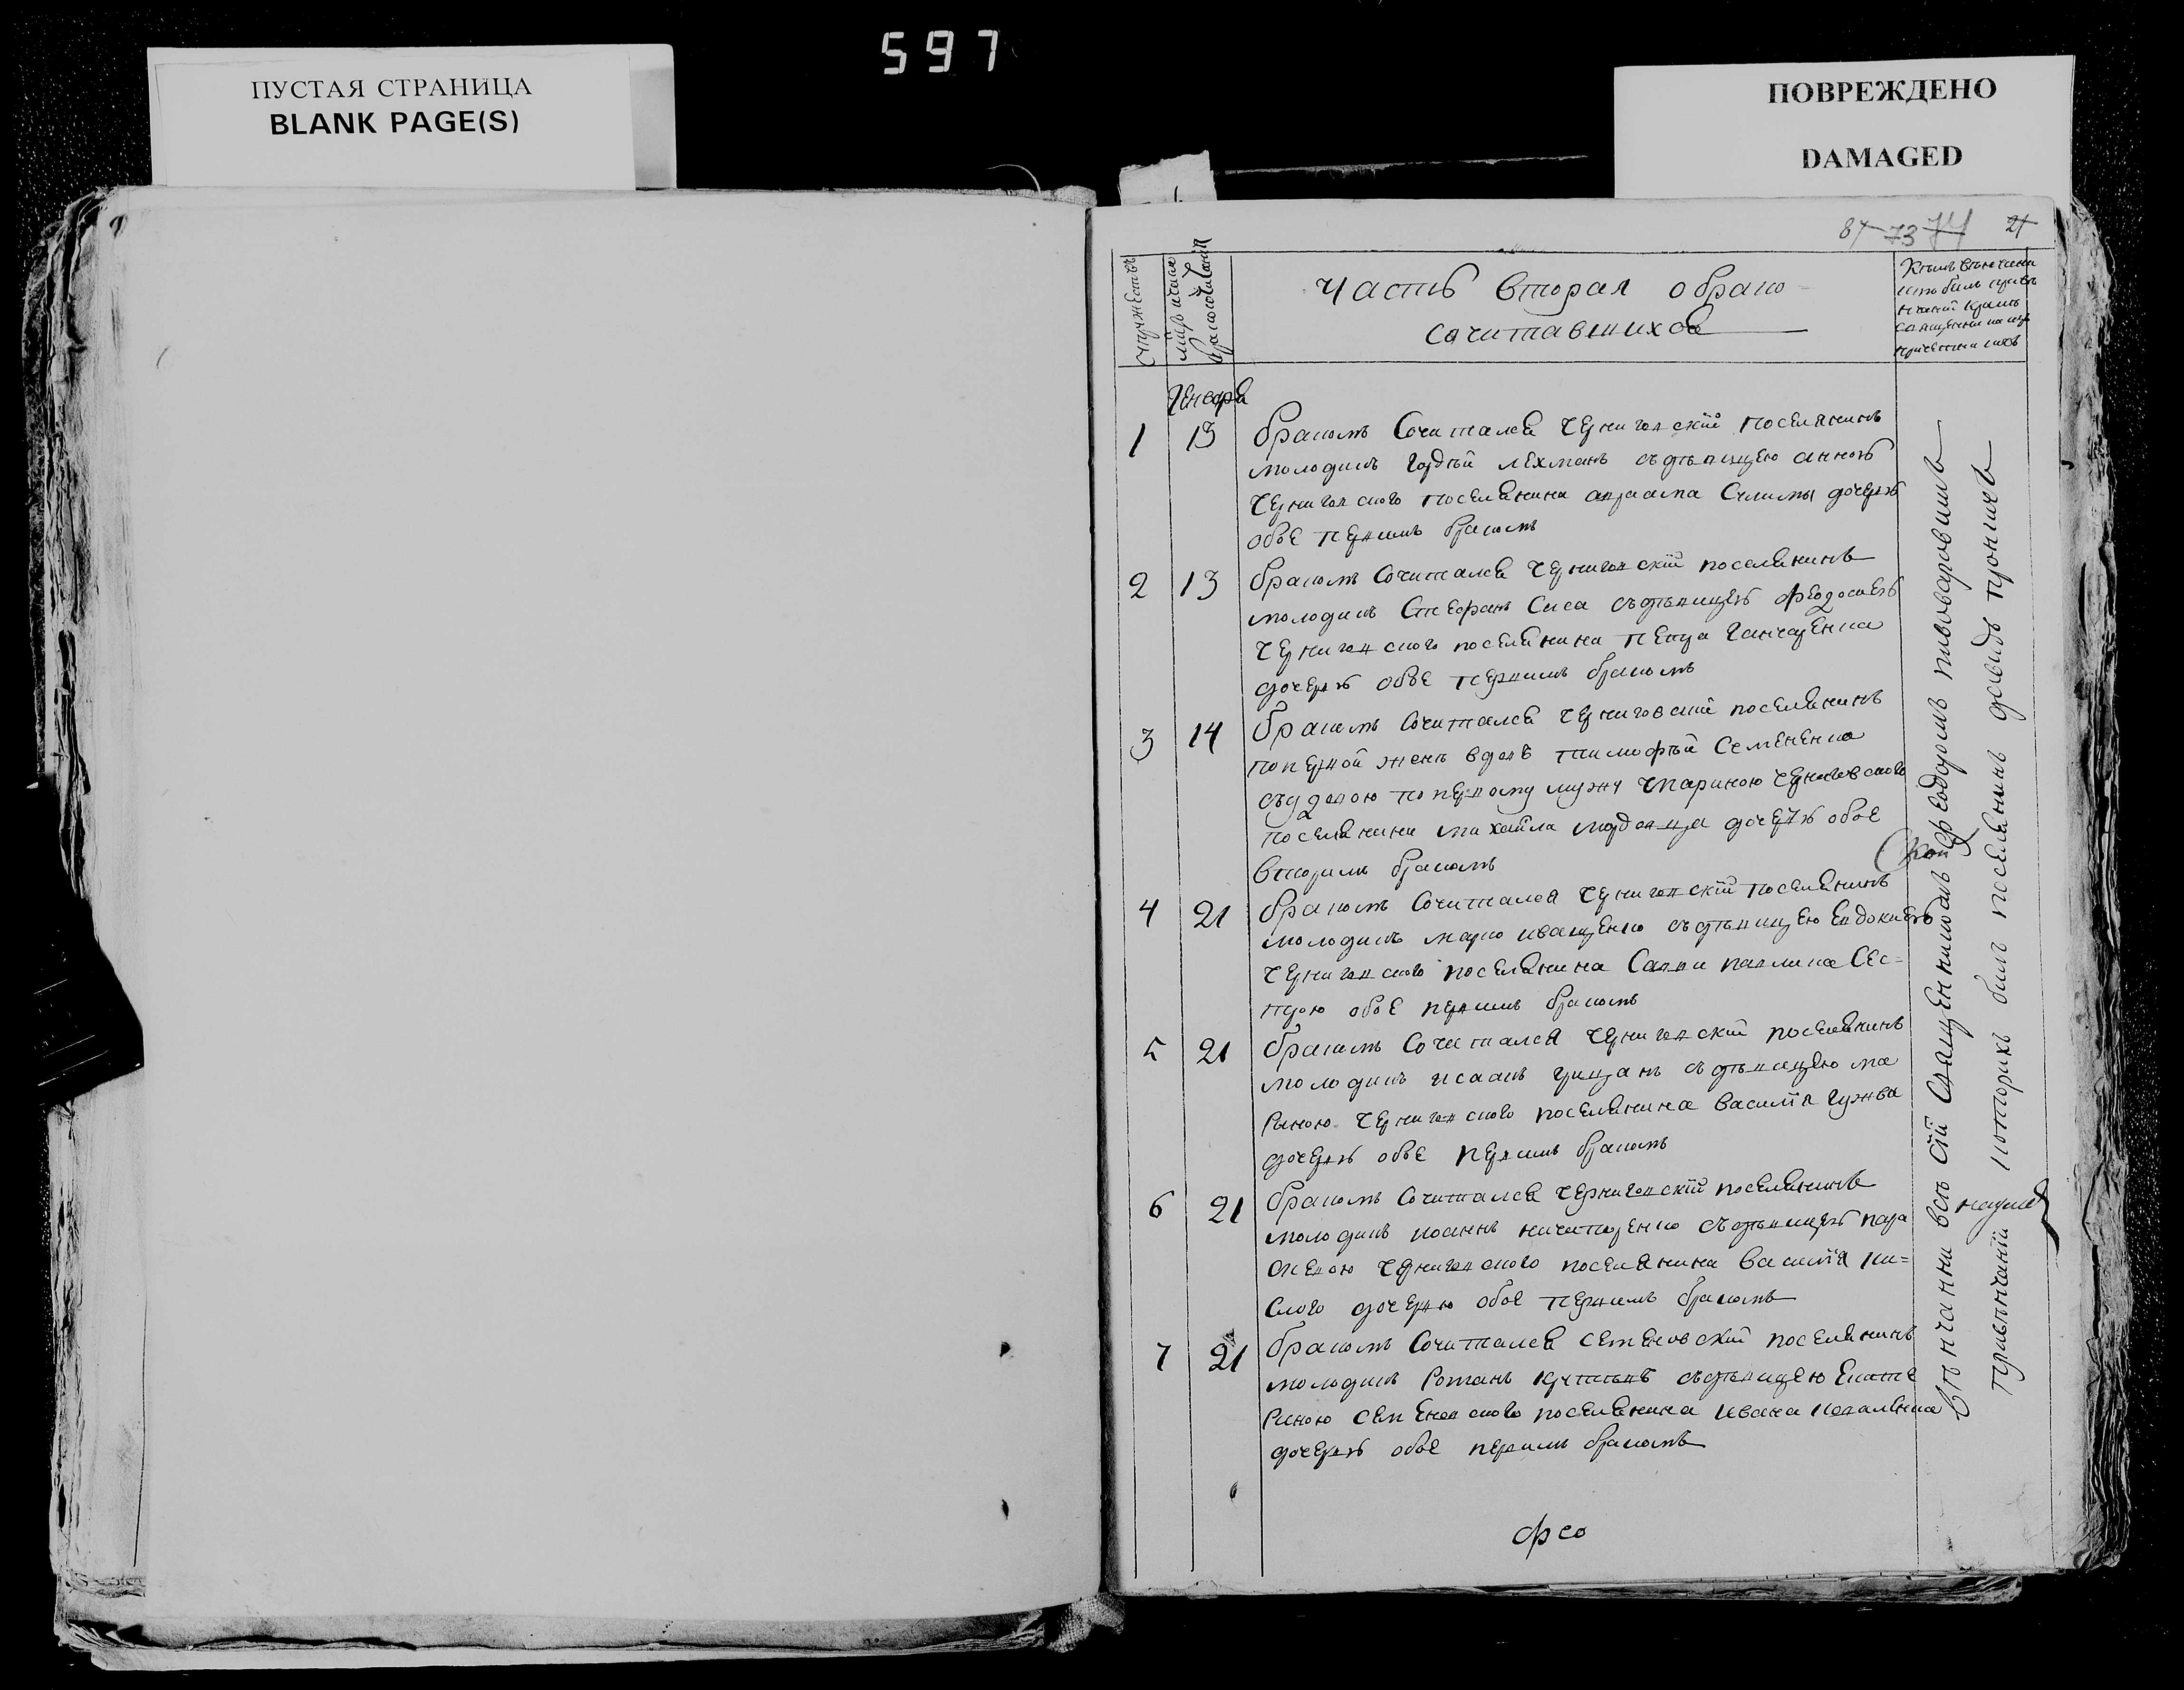 597
ПУСТАЯ СТРАНИЦА
BLANK PAGE(S)
ПОВРЕЖДЕНО
DAMAGED
87 73 74 21
Счит мужества
Часть вторая о брако-
сочитавшихся
Генваря
1 13 бракомъ Сочитался Черниговскій Поселянинъ
молодикъ Гордѣй Лехманъ съ дѣвицею Анною
Черниговского поселянина авраама дочерю
обое первимъ бракомъ
2 13 бракомъ Сочитался Черниговскій поселянинъ
молодикъ Стефанъ Сиса съ дѣвицею Феодосиею
Черниговского поселянина Петра Ганчаренка
дочерю обое первимъ бракомъ
3 14 бракомъ Сочитался Черниговский поселянинъ
по первой женѣ вдовъ тимофѣй Семененко
съ вдовою по первому мужу Мариною Черниговского
поселянина михайла мордовца дочерю обое
вторимъ бракомъ
4 21 бракомъ Сочитался Черниговскій поселянинъ
молодикъ марко иващенко съ дѣвицею Евдокиею
Черниговского поселянина Саввы павлика Сес=
трою обое первимъ бракомъ
5 21 бракомъ Сочитался Черниговскій поселянинъ
молодикъ исаакъ грицанъ съ дѣвицею ма
риною Черниговского поселянина василія гужва
дочерю обое первимъ бракомъ
6 21 бракомъ Сочитался Черниговскій поселянинъ
молодикъ иоаннъ ничипоренко съ дѣвицею пара
скевою Черниговского поселянина василія ки=
слого дочерю обое первимъ бракомъ
7 21 бракомъ Сочитался Семеновский поселянинъ
молодикъ Романъ съ дѣвицею Екате
риною Семеновского поселянина ивана коваленка
дочерю обое первимъ бракомъ
Вѣнчанни всѣ сій Священникомъ феодоромъ пивоваровимъ
при вѣнчаніи которихъ билъ поселянинъ давидъ
фео